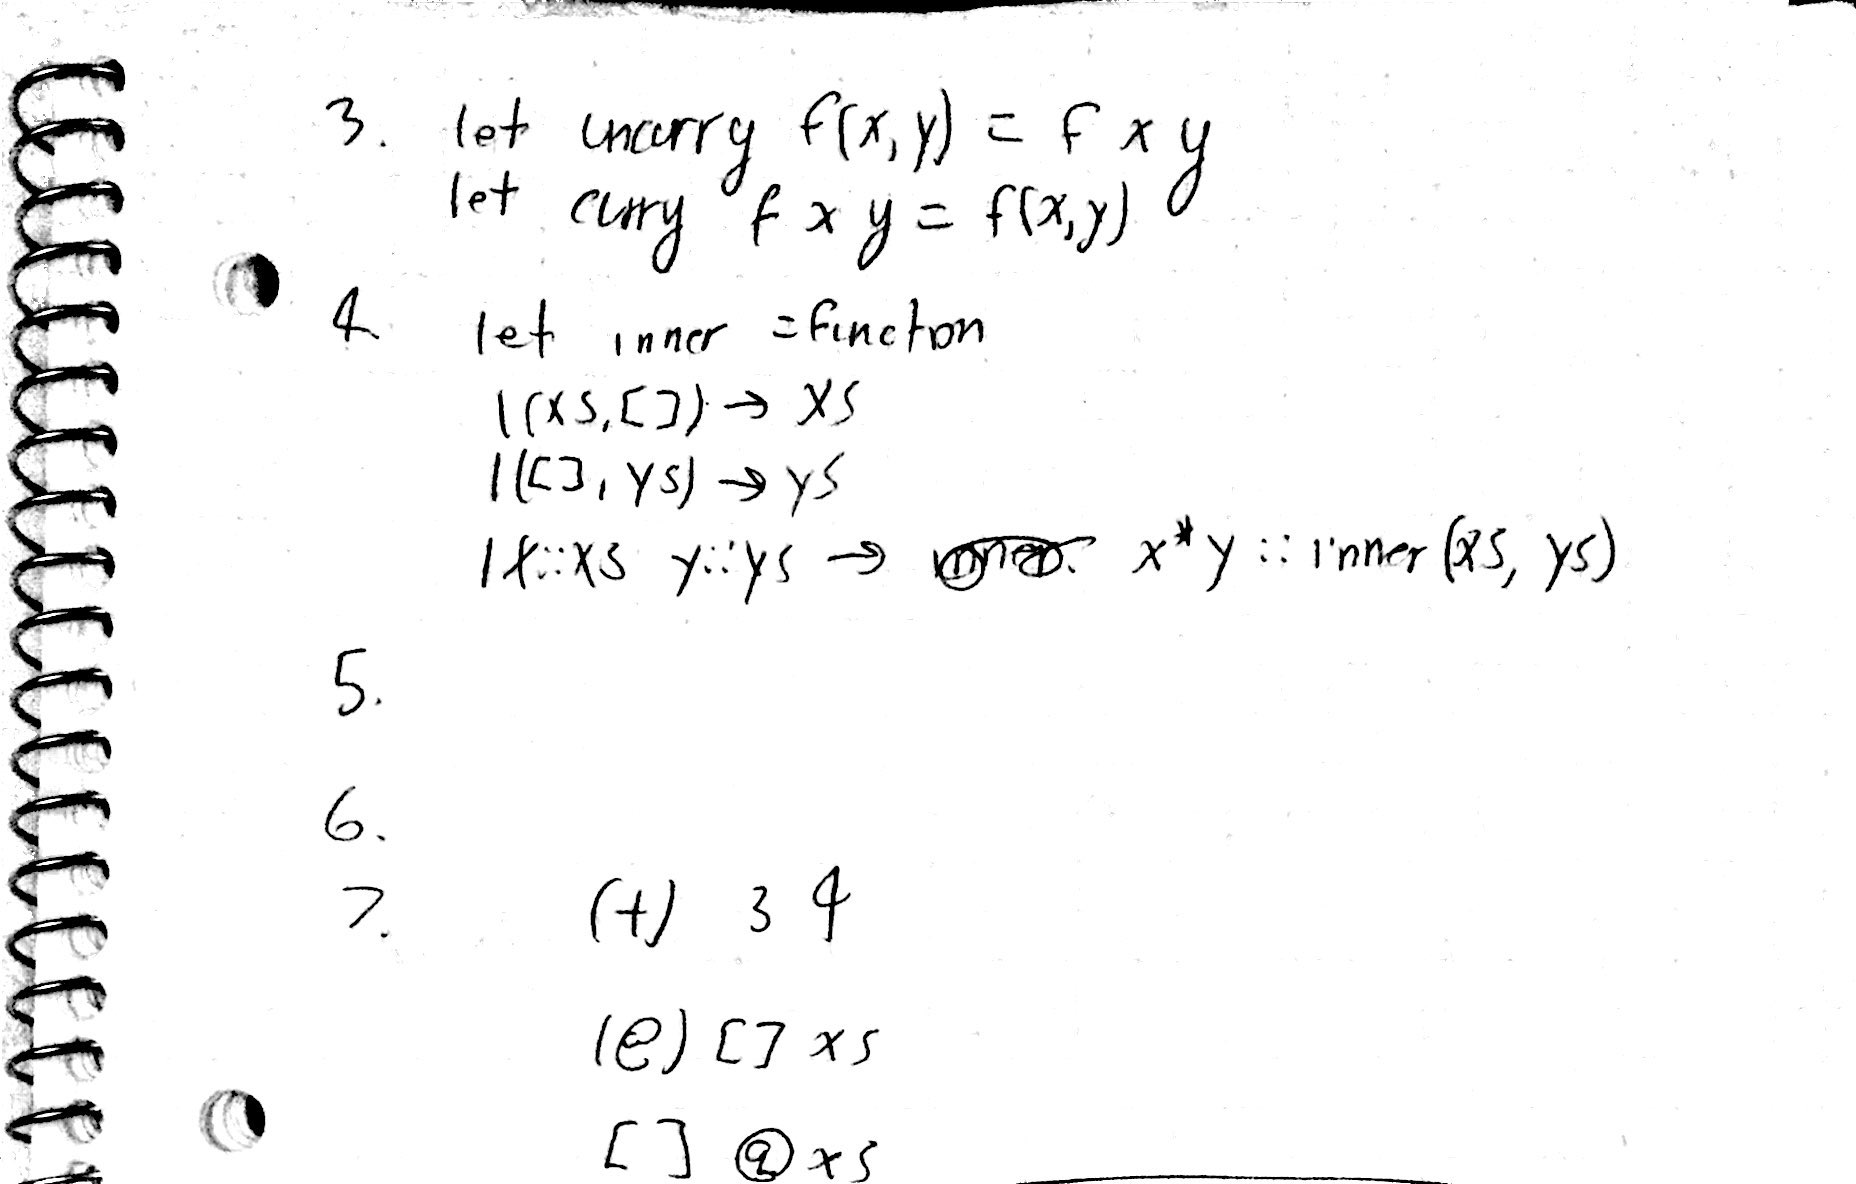 3. let uncurry f(x,y) = f x y
let curry f x y = f(x,y)
4 let inner = function
|(xs,[]) → xs
|([], ys) → ys
|x::xs y::ys → x*y :: inner (xs, ys)
5.
6.
7. (+) 3 4
(@) [] xs
[] @ xs